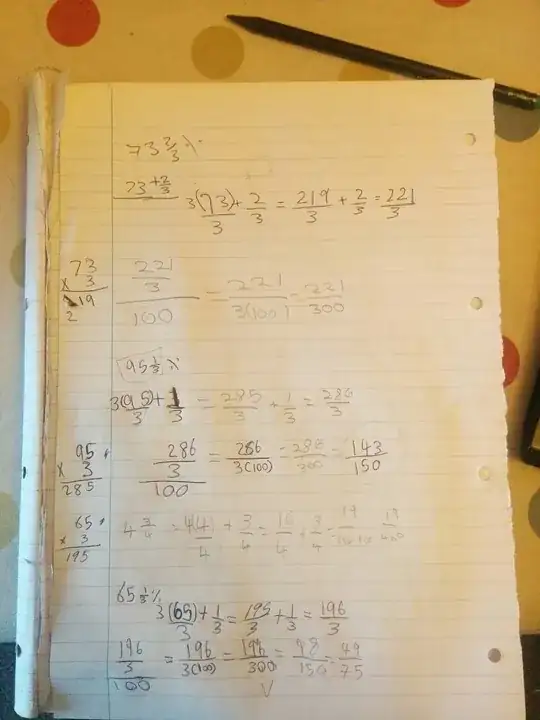 73 2/3 %
73 + 2/3
3(73)/3 + 2/3 = 219/3 + 2/3 = 221/3
73
× 3
19
2
221/3 / 100 = 221/3(100) = 221/300
95 1/3 %
3(95)/3 + 1/3 = 285/3 + 1/3 = 286/3
95
× 3
285
286/3 / 100 = 286/3(100) = 286/300 = 143/150
65
× 3
195
4 3/4 = 4(4)/4 + 3/4 = 16/4 + 3/4 = 19
65 1/3 %
3(65)/3 + 1/3 = 195/3 + 1/3 = 196/3
196/3 / 100 = 196/3(100) = 196/300 = 98/150 = 49/75